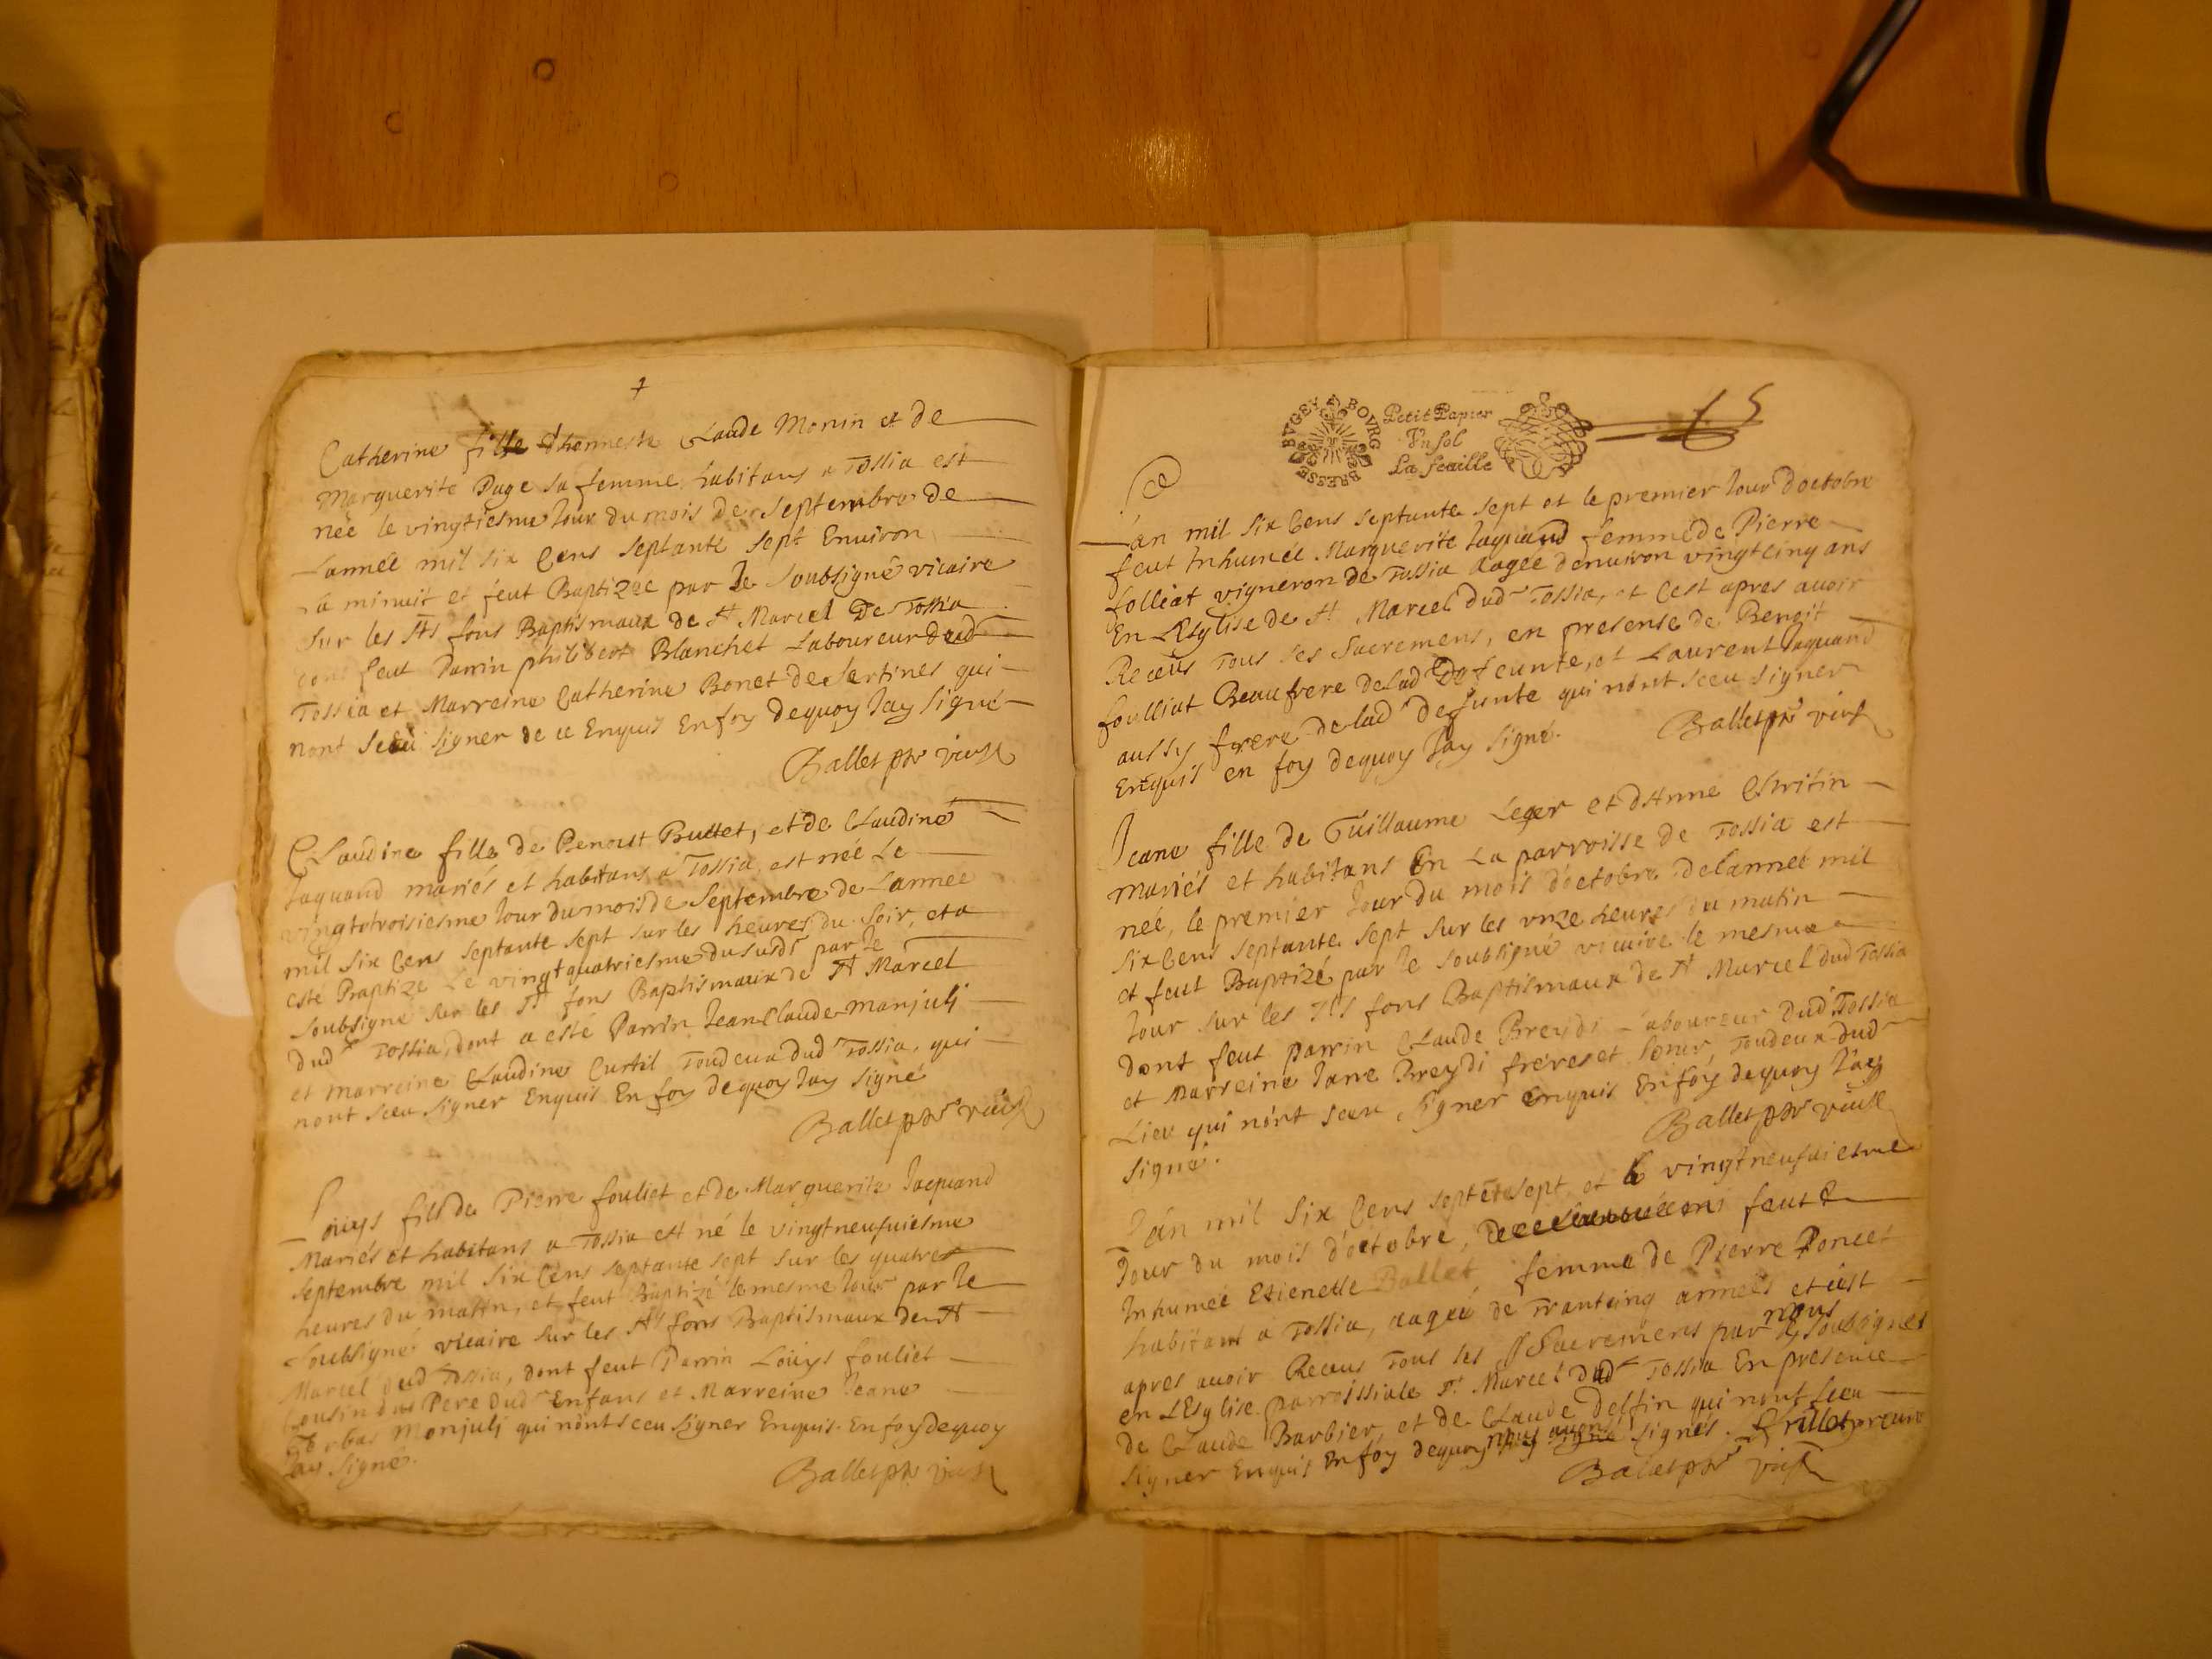 Catherine fille d'honneste Claude Monin et de
Marguerite Page sa femme habitans a Tossia est
née le vingtiesme Jour du mois de Septembre de
Lannée mil six Cens septante sept Environ
La minuit et feut Baptizée par Je Soubsigné vicaire
sur les Sts fons Baptismaux de St Marcel De Tossia
dont feut Parrin philibert Blanchet Laboureur dud
Tossia et Marreine Catherine Bonet de Sertines qui
nont sceu signer de ce Enquis En foy dequoy Jay Signé
Ballet pbr vic
Claudine fille de Benoist Buttet, et de Claudine
Jaquand mariés et habitans à Tossia est née Le
vingtroisiesme Jour du mois de Septembre de Lannée
mil six Cens septante sept sur les heures du soir, et a
esté Baptize Le vingt quatriesme du susdt par Je
Soubsigné sur les St fons Baptismaux de St Marcel
dudt Tossia, dont a esté Parrin Jean Claude Manjuli
et marreine Claudine Curtil Toudeux dud Tossia, qui
nont sceu signer Enquis En foy dequoy Jay signé
Ballet pbr vic
Louys fils de Pierre fouliet et de Marguerite Jaquand
Mariés et habitans a Tossia est né le vingt neufuiesme
Septembre mil six Cens septante sept sur les quatres
heures du matin, et feut Baptizé le mesme Jour par Je
Soubsigné vicaire sur les Sts fons Baptismaux de St
Marcel dud Tossia, dont feut Parrin Loüys fouliet
Cousin du Pere dud Enfans et Marreine Jeane
Monjuli qui nont sceu signer Enquis. En foy dequoy
Jay signé.
Ballet pbr vic
BVGEY BOVRG BRESSE
Petit Papier
Vn sol
La feuille
15
Lan mil six Cens septante sept et le premier Jour doctobre
feut Inhumée Marguerite Jaquand femme de Pierre
folliat vigneron de Tossia aagée denuiron vingt cinq ans
En LEsglise de St Marcel dudt Tossia, et Cest apres auoir
Receüs Tous ses Sacremens, en presense de Benoit
foulliat Beaufrere delad Defeunte, et Laurent Jaquand
aussy frere delad defunte qui nont sceu signer
Enquis en foy dequoy Jay signé.
Ballet pbr vic
Jeane fille de Guillaume Leger et dAnne Chritin
mariés et habitans En La parroisse de Tossia est
née, le premier Jour du mois doctobre delannée mil
six Cens septante sept sur les vnze heures du matin
et feut Baptizé par Je Soubsigné vicaire le mesme
Jour sur les Sts fons Baptismaux de St Marcel dud Tossia
dont feut parrin Claude Breydi Laboureur dud Tossia
et Marreine Jane Breydi freres et soeur, Toudeux dud
Lieu qui nont sceu signer Enquis En foy dequoy Jay
signé.
Ballet pbr vic
Lan mil six Cens septte sept, et le vingt neufuiesme
Jour du mois d'octobre, feut
Inhumée Etienette Ballet femme de Pierre Poncet
habitant a Tossia, aagée de Trantcinq années et cest
apres auoir Receus Tous les SSacremens par nous Soubsignés
en LEsglise parroissiale St Marcel dud Tossia En presence
de Claude Barbier, et de Claude Delfin qui nont sceu
signer Enquis En foy dequoy nous auons signés.
Ballet pbr vic